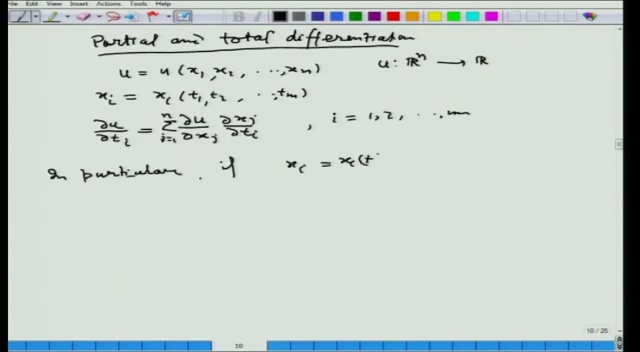 File Edit View Insert Actions Tools Help
Partial and total differentiation
u = u(x₁, x₂, ..., xₙ) u: ℝⁿ → ℝ
xᵢ = xᵢ(t₁, t₂, ..., tₘ)
∂u/∂tᵢ = Σⱼ₌₁ⁿ ∂u/∂xⱼ ∂xⱼ/∂tᵢ , i = 1, 2, ..., m
In particular, if xᵢ = xᵢ(t
10 / 25
10